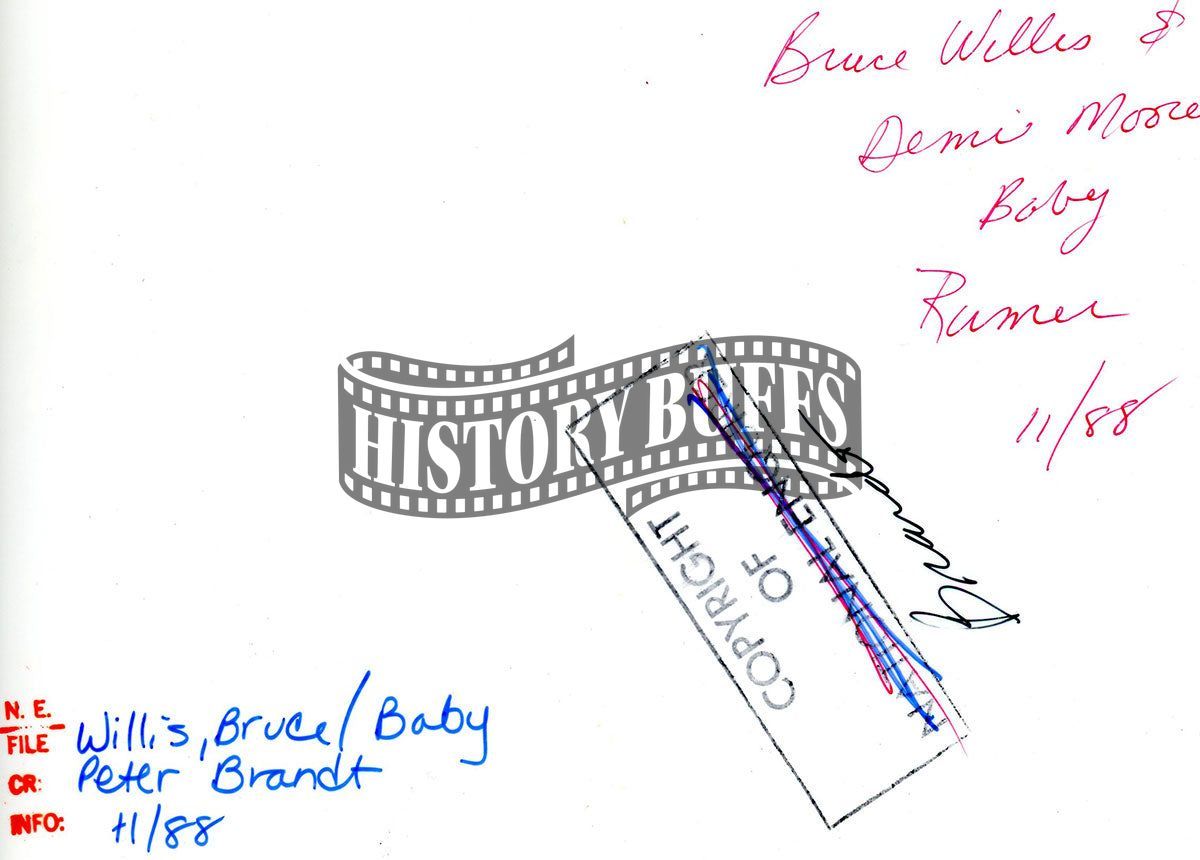 Bruce Willis &
Demi Moore
Baby
Rumer
11/88
HISTORY BUFFS
COPYRIGHT
OF
NATIONAL ENQUIRER
Brandt
N. E.
FILE Willis, Bruce/Baby
CR: Peter Brandt
INFO: 11/88